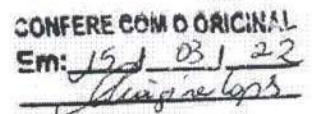 CONFERE COM O ORIGINAL
Em: 15 / 03 / 22